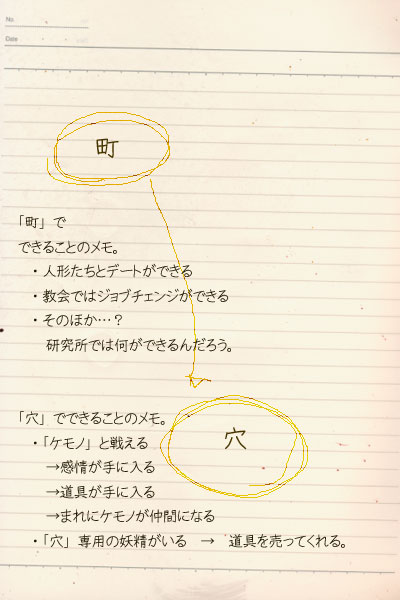 No
Date
町
「町」で
できることのメモ。
・人形たちとデートができる
・教会ではジョブチェンジができる
・そのほか…？
研究所では何ができるんだろう。
穴
「穴」でできることのメモ。
・「ケモノ」と戦える
→感情が手に入る
→道具が手に入る
→まれにケモノが仲間になる
・「穴」専用の妖精がいる　→　道具を売ってくれる。